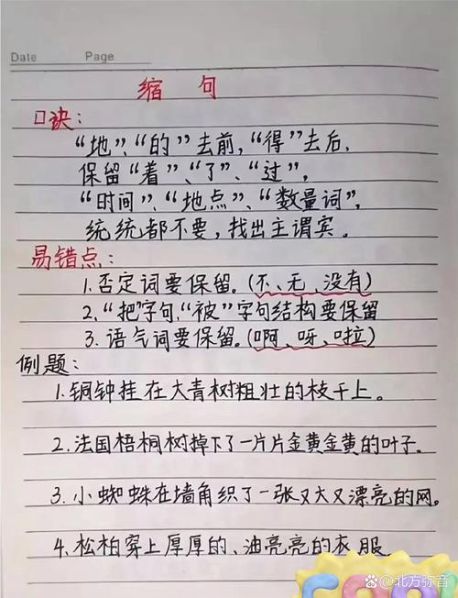 Date Page
缩句
口诀:
“地”“的”去前,“得”去后,
保留“着”、“了”、“过”,
“时间”、“地点”、“数量词”,
统统都不要,找出主谓宾。
易错点:
1.否定词要保留.(不、无、没有)
2.“把”字句,“被”字句结构要保留
3.语气词要保留.(啊、呀、啦)
例题:
1.铜钟挂在大青树粗壮的枝干上。
2.法国梧桐树掉下了一片片金黄金黄的叶子.
3.小蜘蛛在墙角织了一张又大又漂亮的网。
4.松柏穿上厚厚的、油亮亮的衣服
COOL
百家号/北方弥音